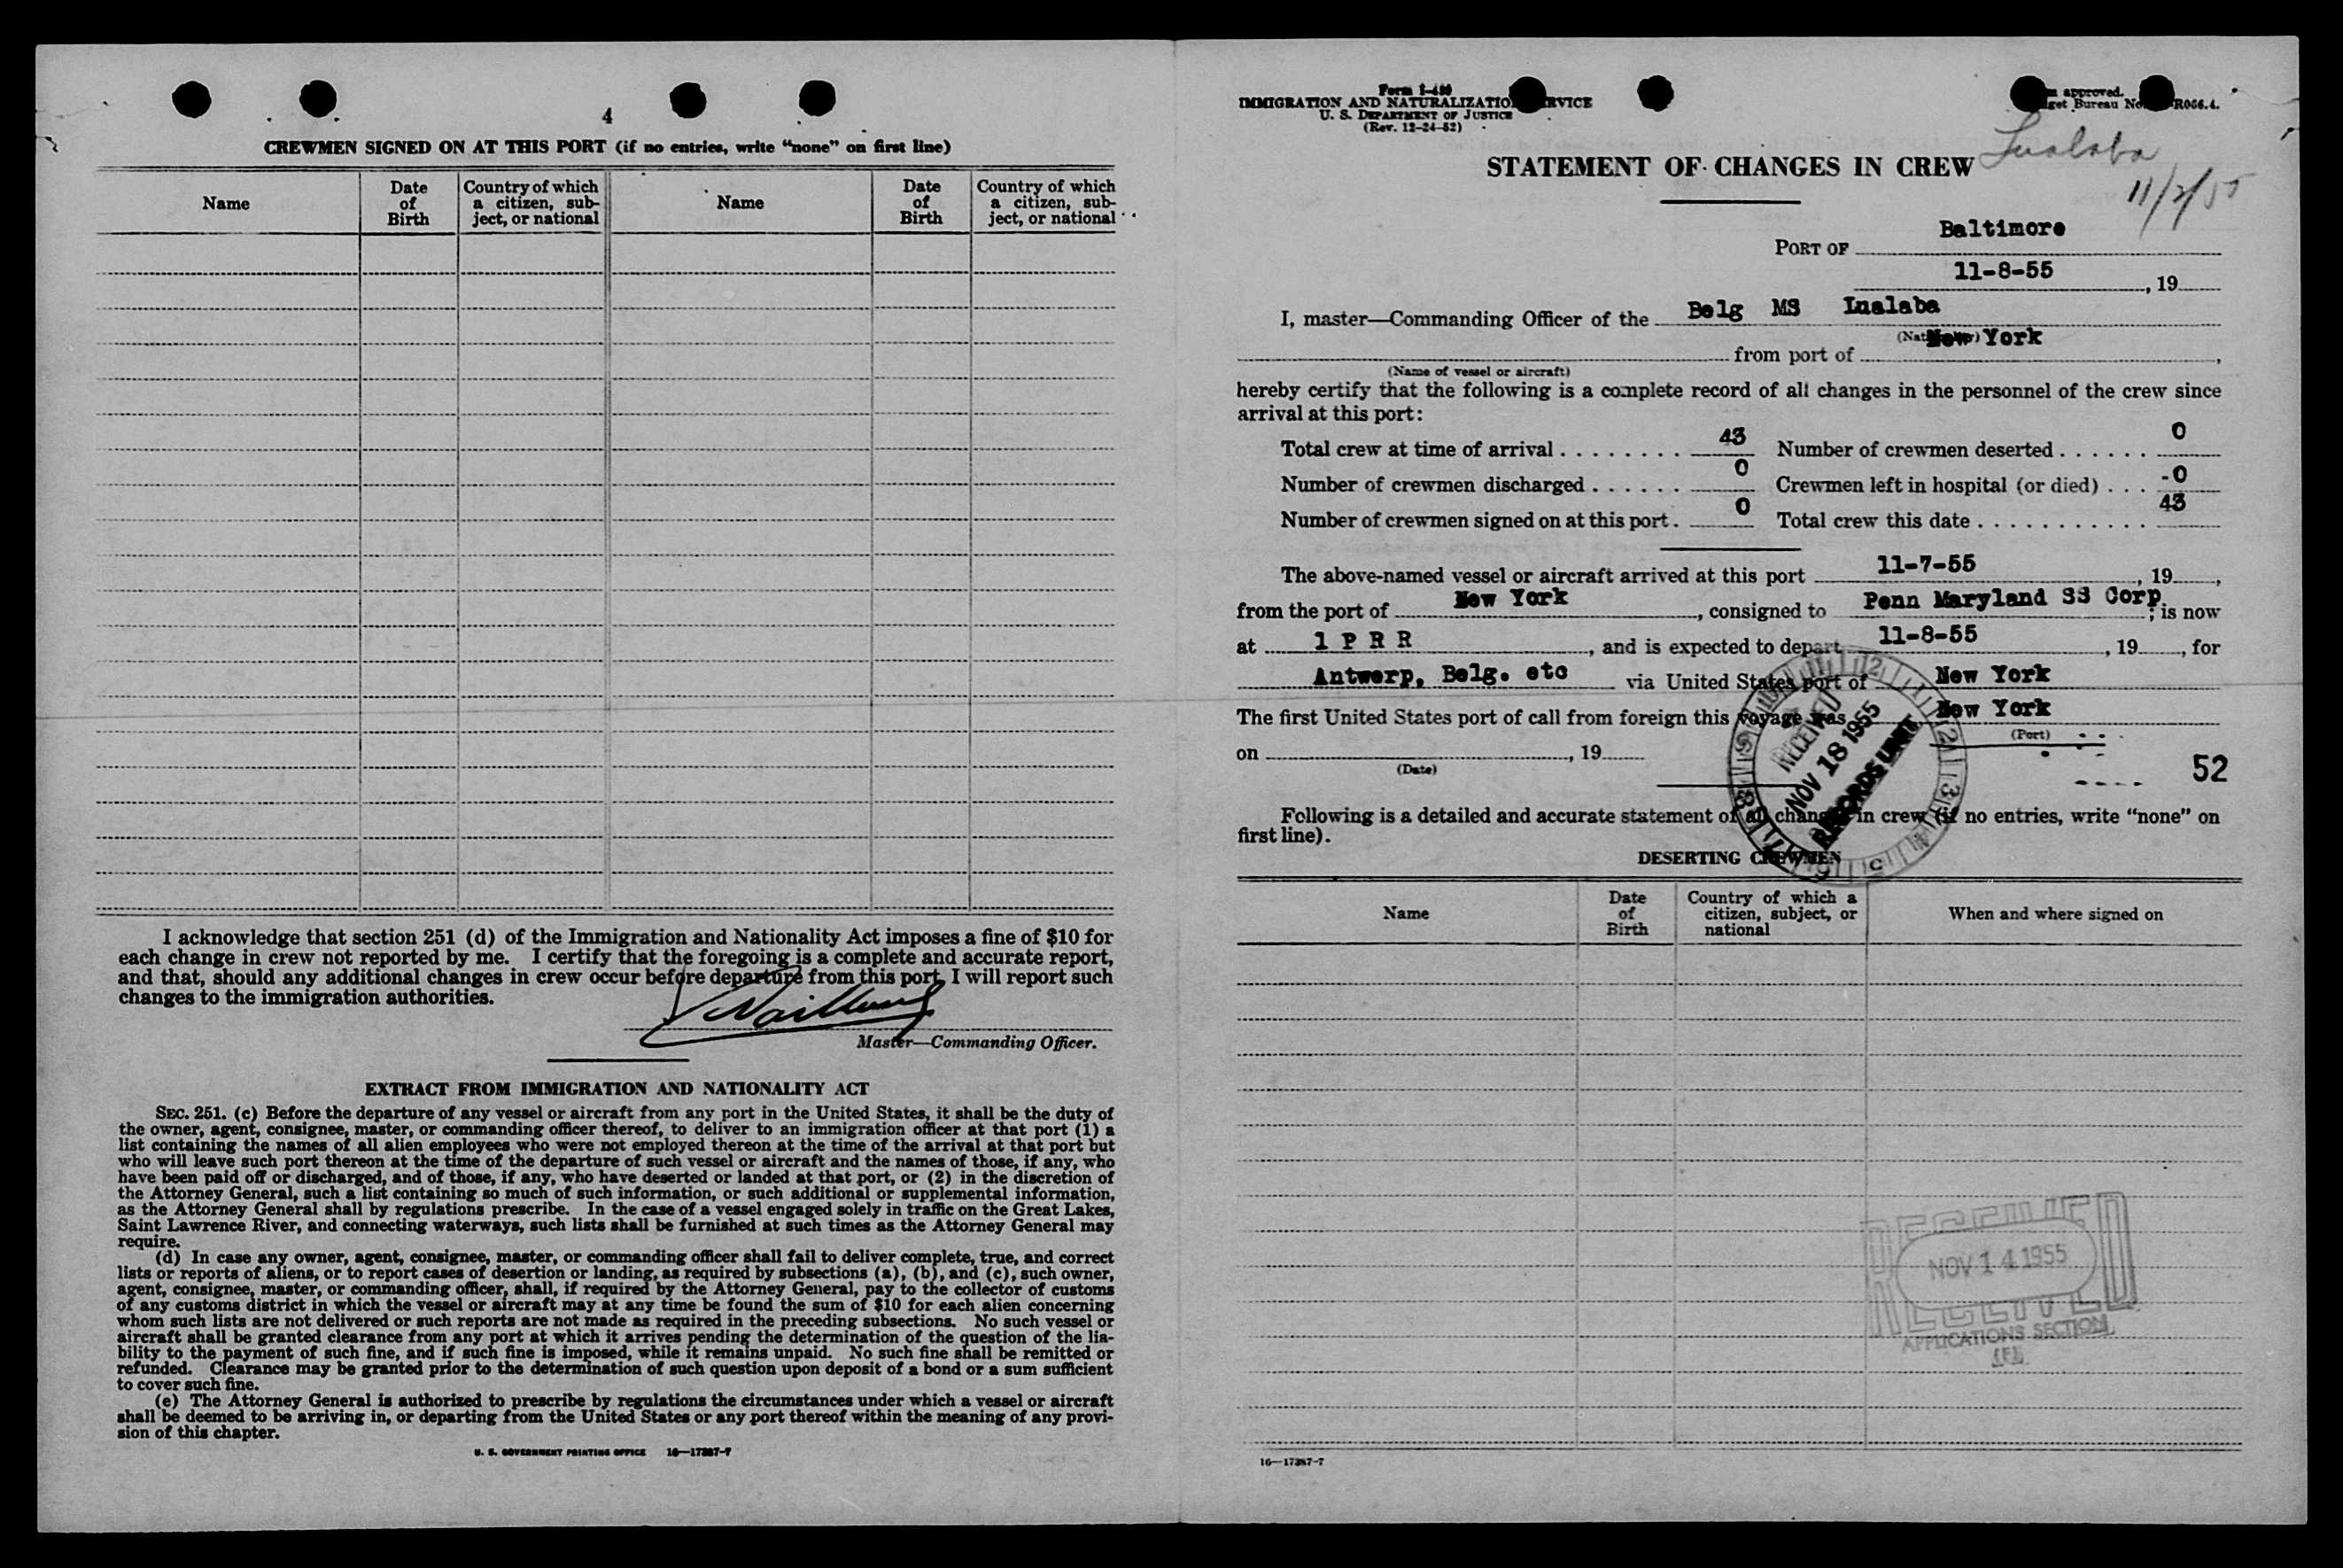 4
CREWMEN SIGNED ON AT THIS PORT (if no entries, write “none” on first line)
Name
Date of Birth
Country of which a citizen, subject, or national
Name
Date of Birth
Country of which a citizen, subject, or national
I acknowledge that section 251 (d) of the Immigration and Nationality Act imposes a fine of $10 for
each change in crew not reported by me. I certify that the foregoing is a complete and accurate report,
and that, should any additional changes in crew occur before departure from this port, I will report such
changes to the immigration authorities.
Master—Commanding Officer.
EXTRACT FROM IMMIGRATION AND NATIONALITY ACT
SEC. 251. (c) Before the departure of any vessel or aircraft from any port in the United States, it shall be the duty of
the owner, agent, consignee, master, or commanding officer thereof, to deliver to an immigration officer at that port (1) a
list containing the names of all alien employees who were not employed thereon at the time of the arrival at that port but
who will leave such port thereon at the time of the departure of such vessel or aircraft and the names of those, if any, who
have been paid off or discharged, and of those, if any, who have deserted or landed at that port, or (2) in the discretion of
the Attorney General, such a list containing so much of such information, or such additional or supplemental information,
as the Attorney General shall by regulations prescribe. In the case of a vessel engaged solely in traffic on the Great Lakes,
Saint Lawrence River, and connecting waterways, such lists shall be furnished at such times as the Attorney General may
require.
(d) In case any owner, agent, consignee, master, or commanding officer shall fail to deliver complete, true, and correct
lists or reports of aliens, or to report cases of desertion or landing, as required by subsections (a), (b), and (c), such owner,
agent, consignee, master, or commanding officer, shall, if required by the Attorney General, pay to the collector of customs
of any customs district in which the vessel or aircraft may at any time be found the sum of $10 for each alien concerning
whom such lists are not delivered or such reports are not made as required in the preceding subsections. No such vessel or
aircraft shall be granted clearance from any port at which it arrives pending the determination of the question of the lia-
bility to the payment of such fine, and if such fine is imposed, while it remains unpaid. No such fine shall be remitted or
refunded. Clearance may be granted prior to the determination of such question upon deposit of a bond or a sum sufficient
to cover such fine.
(e) The Attorney General is authorized to prescribe by regulations the circumstances under which a vessel or aircraft
shall be deemed to be arriving in, or departing from the United States or any port thereof within the meaning of any provi-
sion of this chapter.
U. S. GOVERNMENT PRINTING OFFICE 16—17387-7
Form I-489
IMMIGRATION AND NATURALIZATION SERVICE
U. S. DEPARTMENT OF JUSTICE
(Rev. 12-24-52)
approved.
get Bureau No. R066.4.
Lualaba
11/2/55
STATEMENT OF CHANGES IN CREW
PORT OF Baltimore
11-8-55, 19
I, master—Commanding Officer of the Belg MS Lualaba
(Nationality)
from port of New York,
(Name of vessel or aircraft)
hereby certify that the following is a complete record of all changes in the personnel of the crew since
arrival at this port:
Total crew at time of arrival . . . . . . . . 43 Number of crewmen deserted . . . . . . 0
Number of crewmen discharged . . . . . . 0 Crewmen left in hospital (or died) . . . -0
Number of crewmen signed on at this port . 0 Total crew this date . . . . . . . . . . . . 43
The above-named vessel or aircraft arrived at this port 11-7-55, 19,
from the port of New York, consigned to Penn Maryland SS Corp; is now
at 1 P R R, and is expected to depart 11-8-55, 19, for
Antwerp, Belg. etc via United States port of New York
The first United States port of call from foreign this voyage was New York
(Port)
on , 19
(Date)
RECEIVED
NOV 18 1955
RECORDS UNIT
52
Following is a detailed and accurate statement of all changes in crew (if no entries, write “none” on
first line).
DESERTING CREWMEN
Name
Date of Birth
Country of which a citizen, subject, or national
When and where signed on
RECEIVED
NOV 14 1955
RECEIVED
APPLICATIONS SECTION
16—17387-7